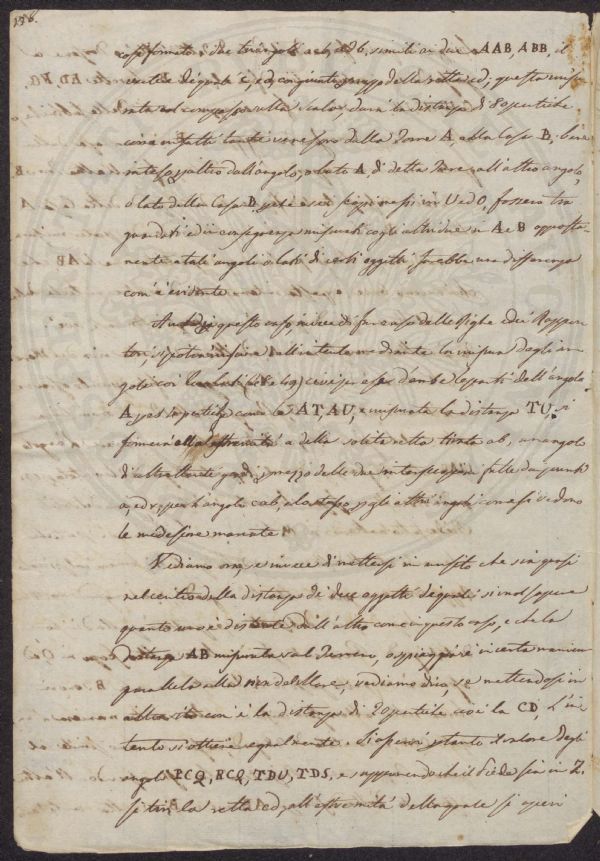 158.
così formato i due triangoli acb, adb, simili ai due AAB, ABB, il
vertice de' quali è c, ed, congiunti per mezzo della retta cd; questa misu-
rata col compasso sulla scala, darà la distanza di 80 pertiche
circa infatti tante ve ne sono dalla Torre A, alla Casa B, bene
inteso però dall'angolo, o lato A di detta Torre all'altro angolo,
o lato della Casa B, perchè se i in U ed O, fossero tra
guardati ed in conseguenza misurati cogli altri due in A e B opposta-
mente a tali angoli o lati di certi oggetti farebbe una differenza
com'è evidente.
questo caso, invece di far uso delle Righe ed i Rappor-
tori, si potrà misurare mediante la misura degli an-
goli coi (48 e 49) cioè prese d'ambe le parti dell'angolo
A, pertiche come le AT, AU, e misurata la distanza TU, si
formerà all'estremità a della solita retta tirata ab, un angolo
d'altrettanti gradi per mezzo delle due intersezioni fatte dai punti
a, ed r, per l'angolo cab, e lo stesso per gli altri angoli come si vedono
le medesime marcate.
Vediamo ora, se invece di mettersi in un sito che sia quasi
nel centro della distanza de' due oggetti de' quali si vuol sapere
quanto uno è distante dall'altro come in questo caso, e che la
distanza AB misurata sul Terreno, o in certa maniera
parallela alla, vediamo dico, se mettendosi in
altro sito com'è la distanza di 20 pertiche cioè la CD, l'in-
tento si ottiene egualmente. Si operi pertanto il valore degli
angoli PCQ, RCQ, TDU, TDS, e supponendo che il Piede sia in Z.
si tiri la retta cd, all'estremità della quale si operi